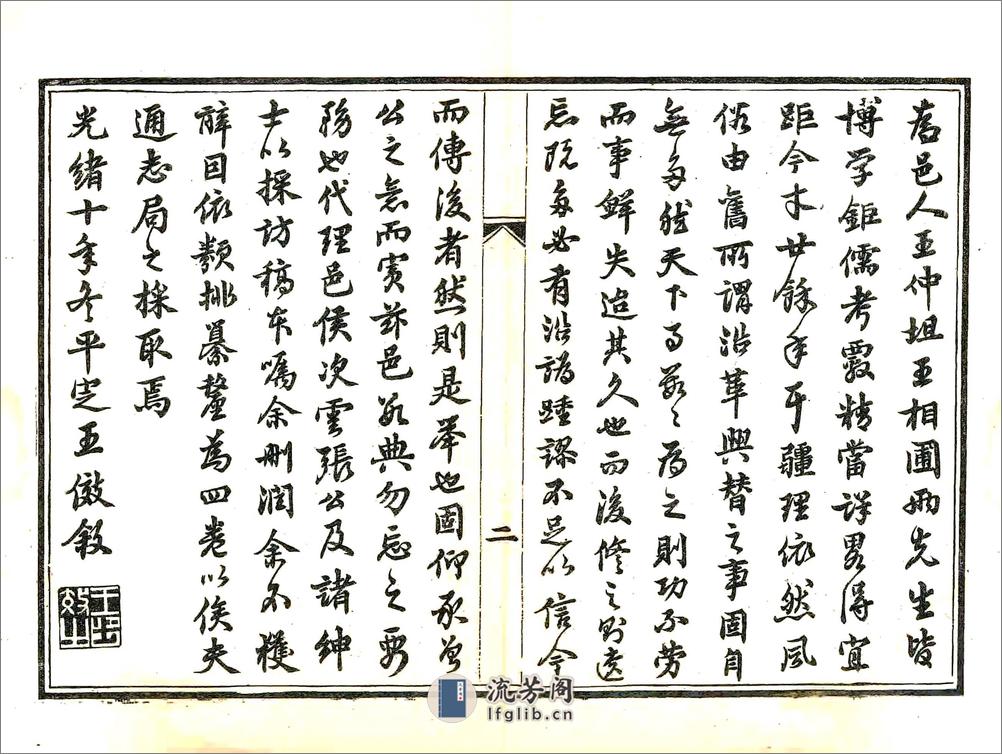 為邑人王仲坦王相圃兩先生皆
博学鉅儒考覈精當詳畧得宜
距今才廿餘年耳疆理依然風
俗由舊所謂沿革興替之事固自
無多然天下事數〻為之則功不勞
而事鮮失迨其久也而後修之則遺
忘既多必有沿譌踵謬不足以信今
二
而傳後者然則是舉也固仰承曾
公之意而實茲邑數典勿忘之要
務也代理邑侯次雲張公及諸紳
士以採訪稿本囑余刪潤余不獲
辭因依類排纂釐為四卷以俟夫
通志局之採取焉
光緒十年冬平定王敘
流芳阁
lfglib.cn